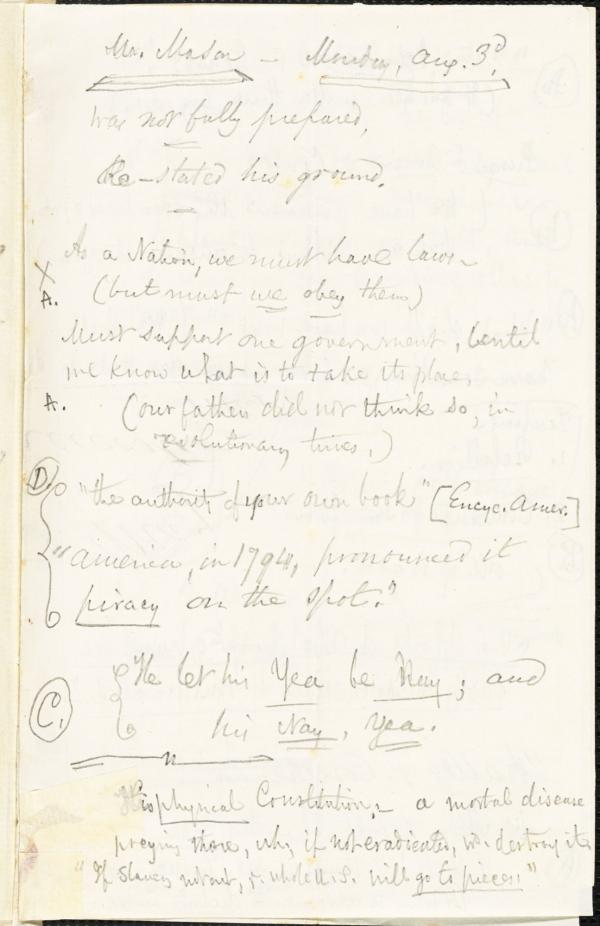 Mr. Mason – Monday, Aug. 3d,
was not fully prepared,
Re-stated his ground.
As a Nation, we must have laws –
X
A. (but must we obey them)
Must support one government, until
we know what is to take its place,
A. (our fathers did not think so, in
revolutionary times.)
D. "the authority of your own book" [Encyc. Amer.]
"America, in 1794, pronounced it
piracy on the spot."
C. He let his Yea be Nay; and
his Nay, Yea.
His physical Constitution, – a mortal disease
preying there, wh, if not eradicated, wd. destroy it.
"If Slavery not out, whole U.S. will go to pieces."